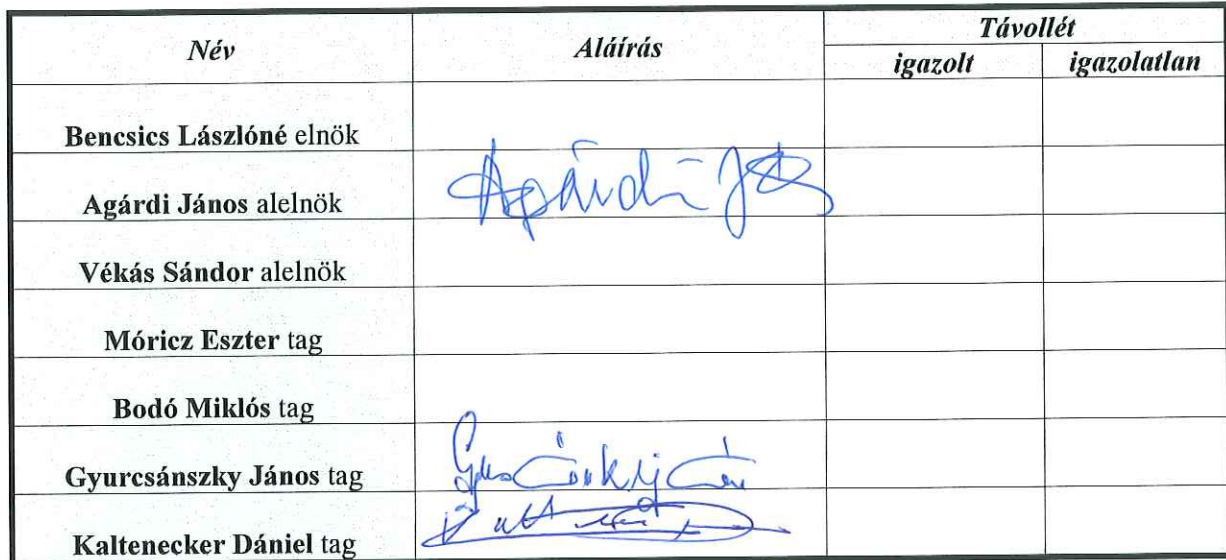 Név Aláírás Távollét
igazolt igazolatlan
Bencsics Lászlóné elnök
Agárdi János alelnök Agárdi J
Vékás Sándor alelnök
Móricz Eszter tag
Bodó Miklós tag
Gyurcsánszky János tag
Kaltenecker Dániel tag